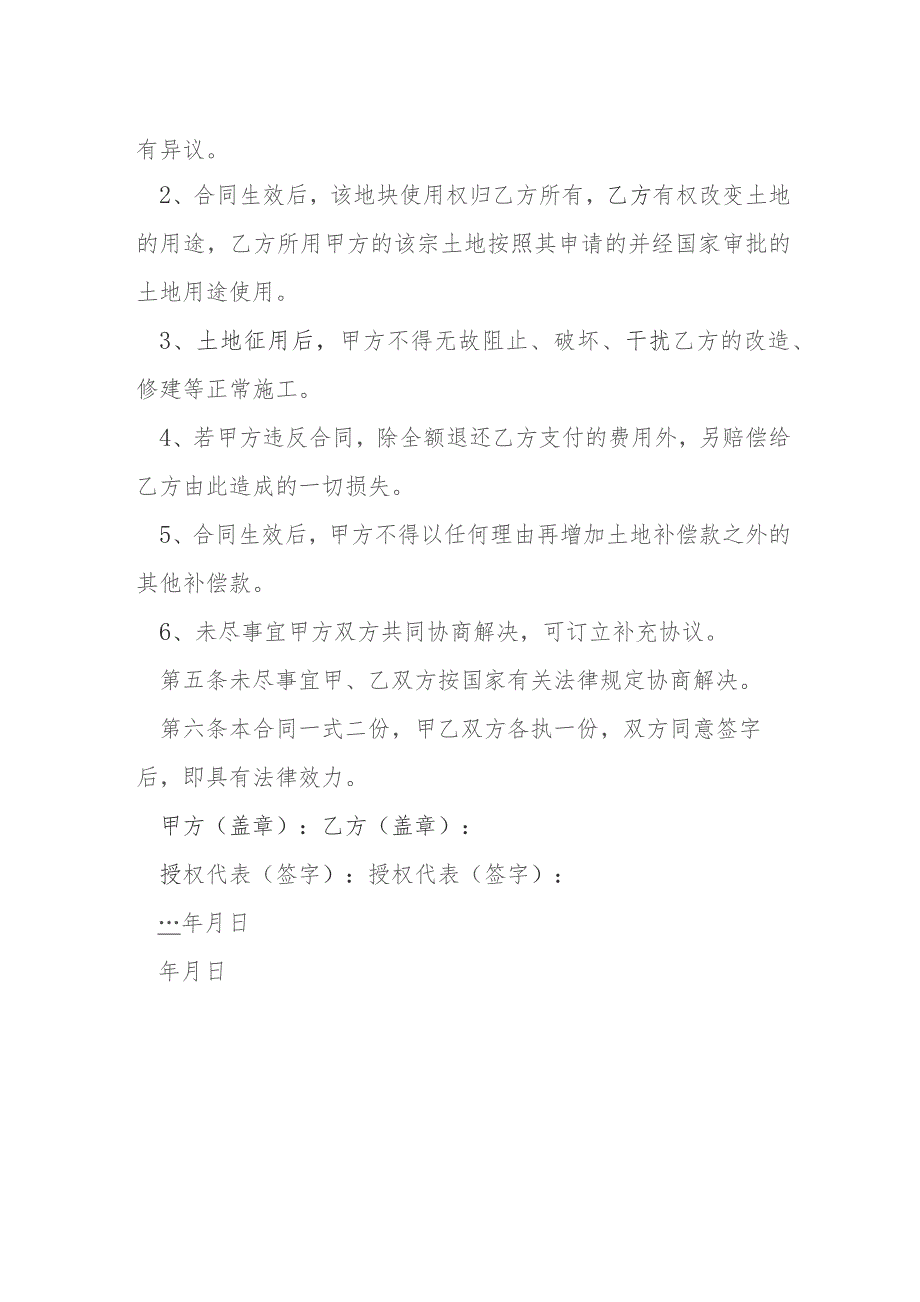 有异议。
2、合同生效后，该地块使用权归乙方所有，乙方有权改变土地
的用途，乙方所用甲方的该宗土地按照其申请的并经国家审批的
土地用途使用。
3、土地征用后，甲方不得无故阻止、破坏、干扰乙方的改造、
修建等正常施工。
4、若甲方违反合同，除全额退还乙方支付的费用外，另赔偿给
乙方由此造成的一切损失。
5、合同生效后，甲方不得以任何理由再增加土地补偿款之外的
其他补偿款。
6、未尽事宜甲方双方共同协商解决，可订立补充协议。
第五条未尽事宜甲、乙双方按国家有关法律规定协商解决。
第六条本合同一式二份，甲乙双方各执一份，双方同意签字
后，即具有法律效力。
甲方（盖章）：乙方（盖章）：
授权代表（签字）：授权代表（签字）：
…年月日
年月日